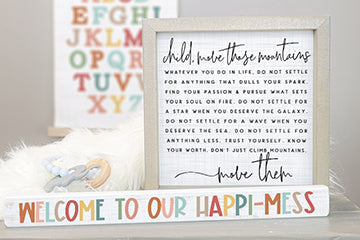 A B C D E
F G H I J
child, move those mountains
WHATEVER YOU DO IN LIFE, DO NOT SETTLE
FOR ANYTHING THAT DULLS YOUR SPARK.
FIND YOUR PASSION & PURSUE WHAT SETS
YOUR SOUL ON FIRE. DO NOT SETTLE FOR
A STAR WHEN YOU DESERVE THE GALAXY.
DO NOT SETTLE FOR A WAVE WHEN YOU
DESERVE THE SEA. DO NOT SETTLE FOR
ANYTHING LESS. TRUST YOURSELF. KNOW
YOUR WORTH. DON'T JUST CLIMB MOUNTAINS,
move them
WELCOME TO OUR HAPPI-MESS